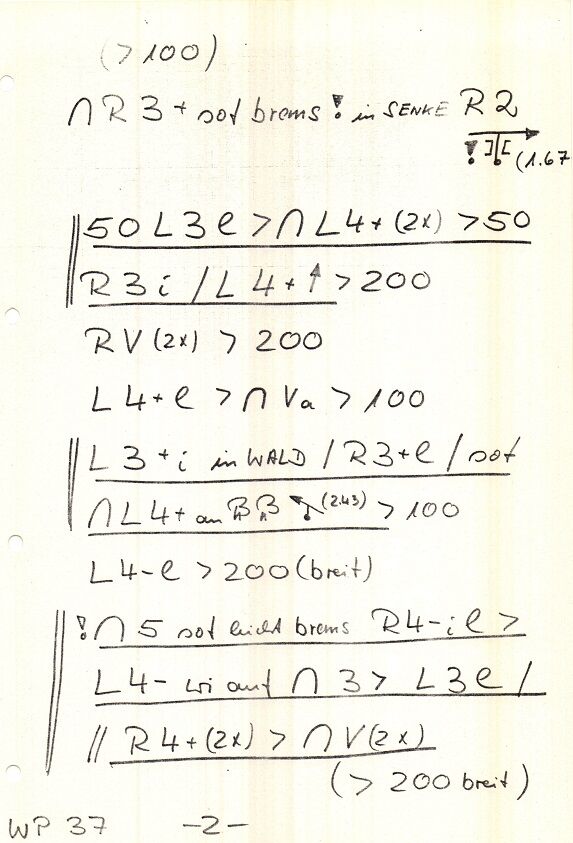 (>100)
∩ R 3+ sof brems ! in SENKE R 2
! ][ (1.67
50 L 3 e > ∩ L 4+ (2x) > 50
R 3 i / L 4+ ↑ > 200
R V (2x) > 200
L 4+ e > ∩ Va > 100
L 3+i in WALD / R 3+e / sof
∩ L 4+ an (2.43) > 100
L 4-e > 200 (breit)
! ∩ 5 sof leicht brems R 4-ie >
L 4- wi auf ∩ 3 > L 3 e /
// R 4+ (2x) > ∩ V (2x)
(> 200 breit)
WP 37 -2-